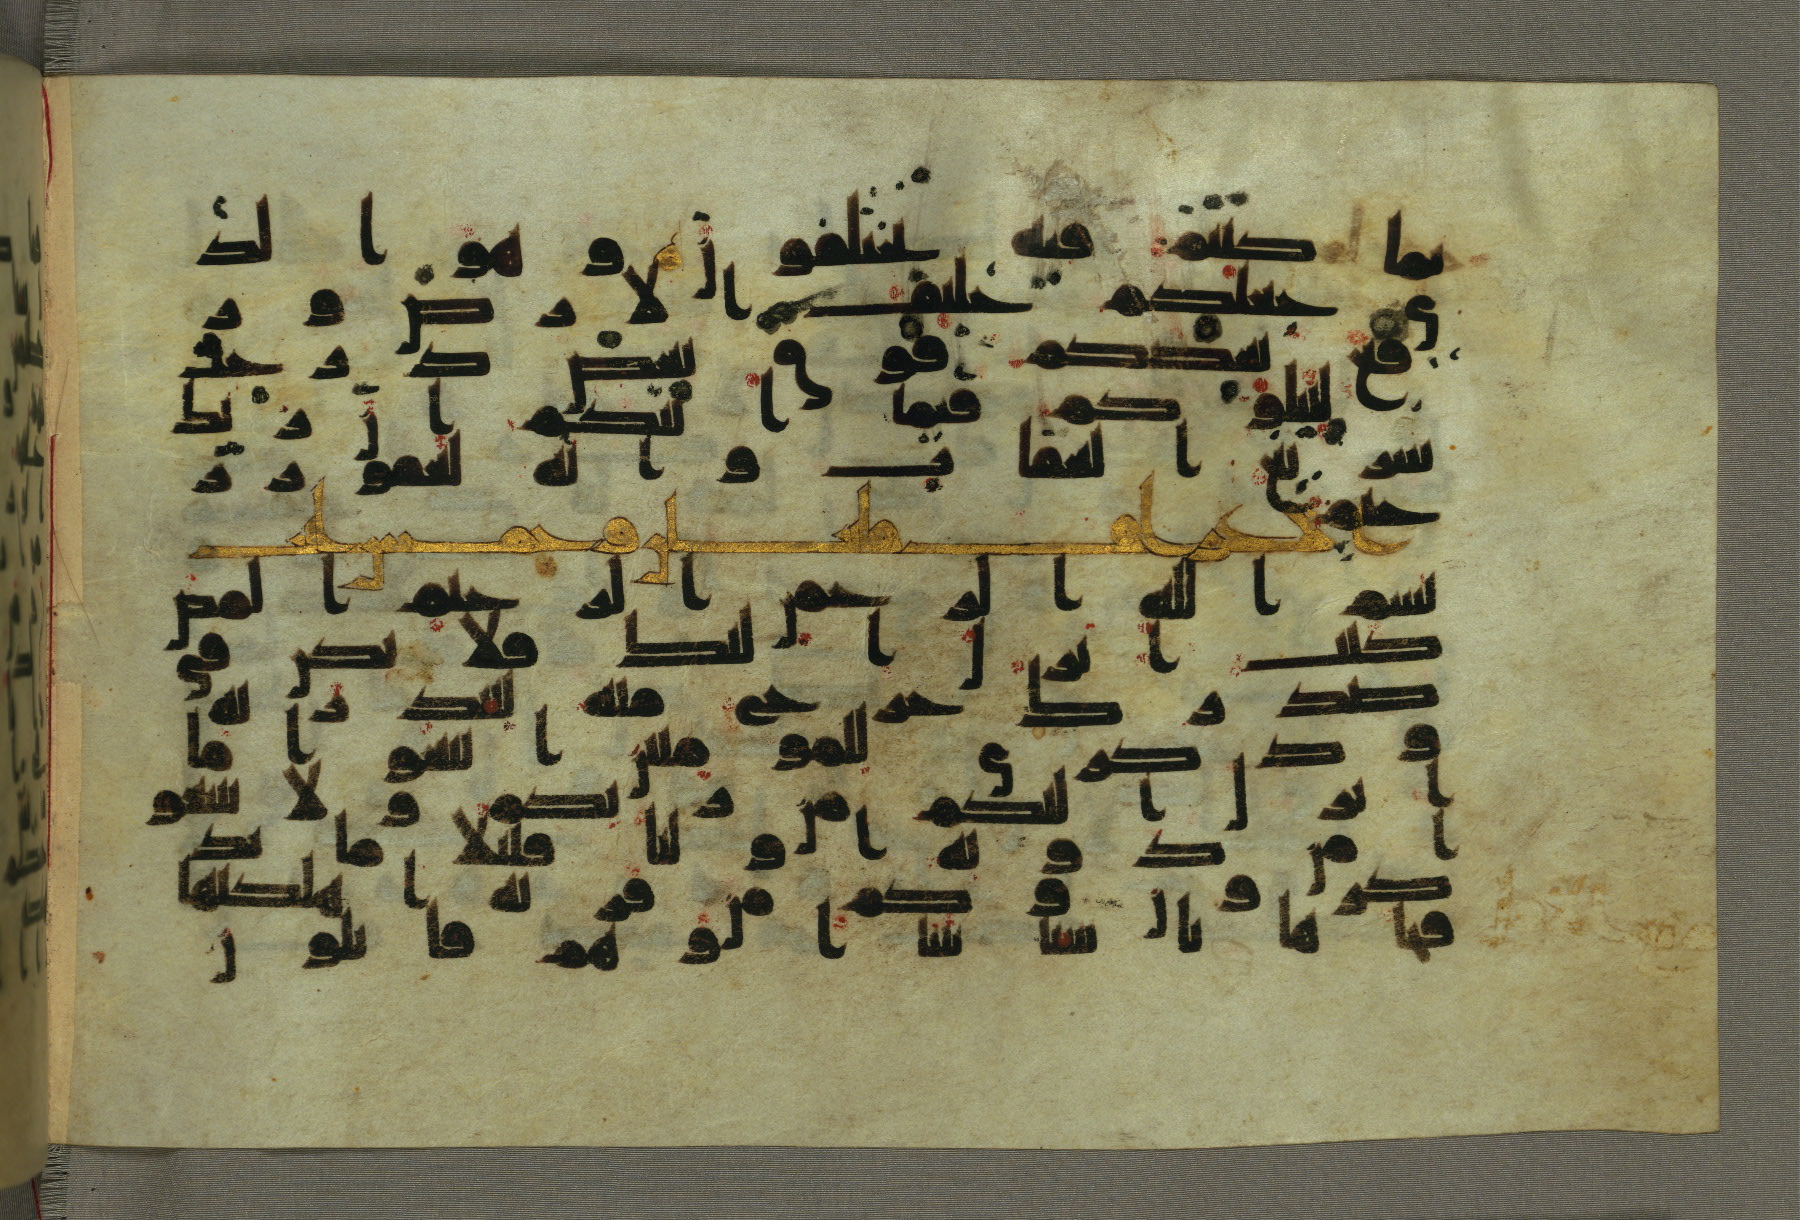 بما كنتم فيه تختلفون وهو الذ
ي جعلكم خلئف الارض ور
فع بعضكم فوق بعض درجت
ليبلوكم فيما اتيكم ان ربك
سريع العقاب وانه لغفور ر
حيم
بسم الله الرحمن الرحيم المص
كتب انزل اليك فلا يكن في
صدرك حرج منه لتنذر به
وذكرى للمومنين اتبعوا ما
انزل اليكم من ربكم ولا تتبعو
ا من دونه اوليا قليلا ما تذ
كرون وكم من قرية اهلكنها
فجاها باسنا بيتا او هم قائلون